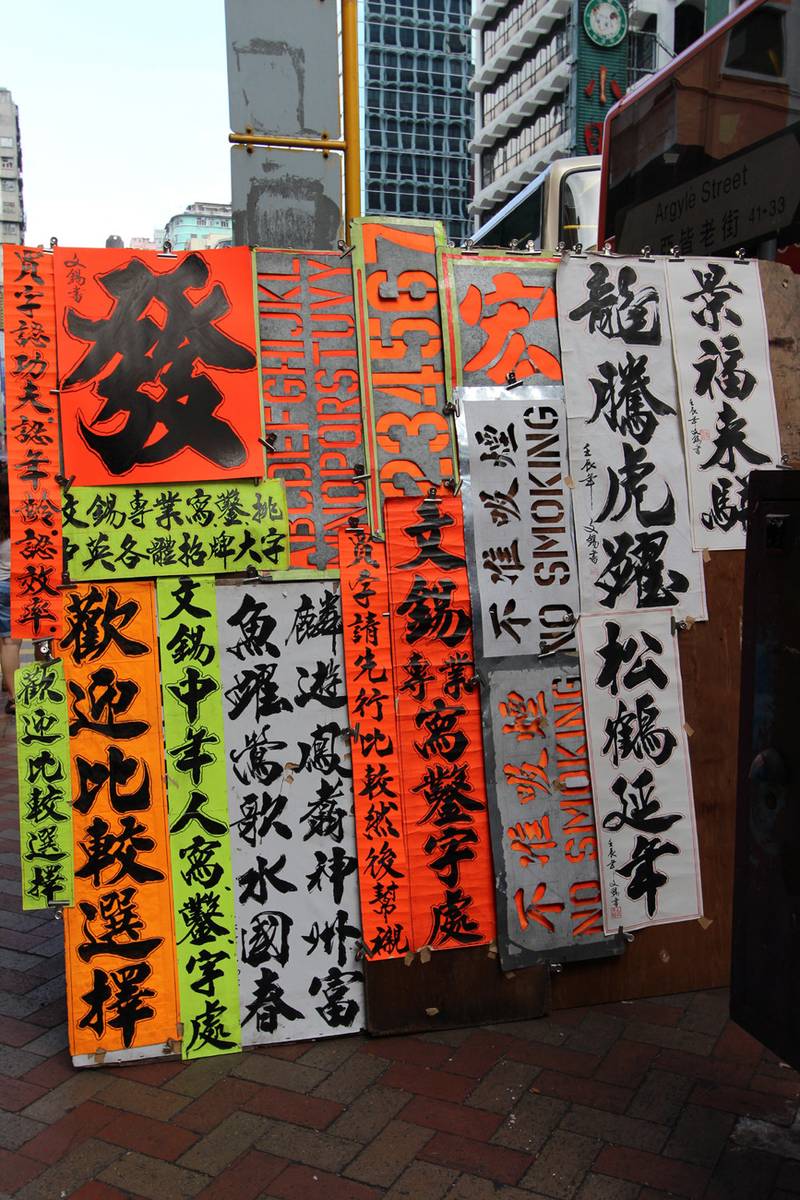 小
Argyle Street
亞皆老街 41-33
買字認功夫認年齡認效率
文錫書
發
ABCDEFGHIJKL
MNOPQRSTUVY
234567
宏
龍騰虎躍
壬辰年 文錫書
景福來
壬辰年文錫書
文錫專業寫鑿挑
中英各體招牌大字
不准吸煙
NO SMOKING
歡迎比較選擇
歡迎比較選擇
文錫中年人寫鑿字處
麟遊鳳翥神州富
魚躍鶯歌水國春
買字請先行比較然後幫襯
文錫專業寫鑿字處
不准吸煙
NO SMOKING
松鶴延年
壬辰年 文錫書